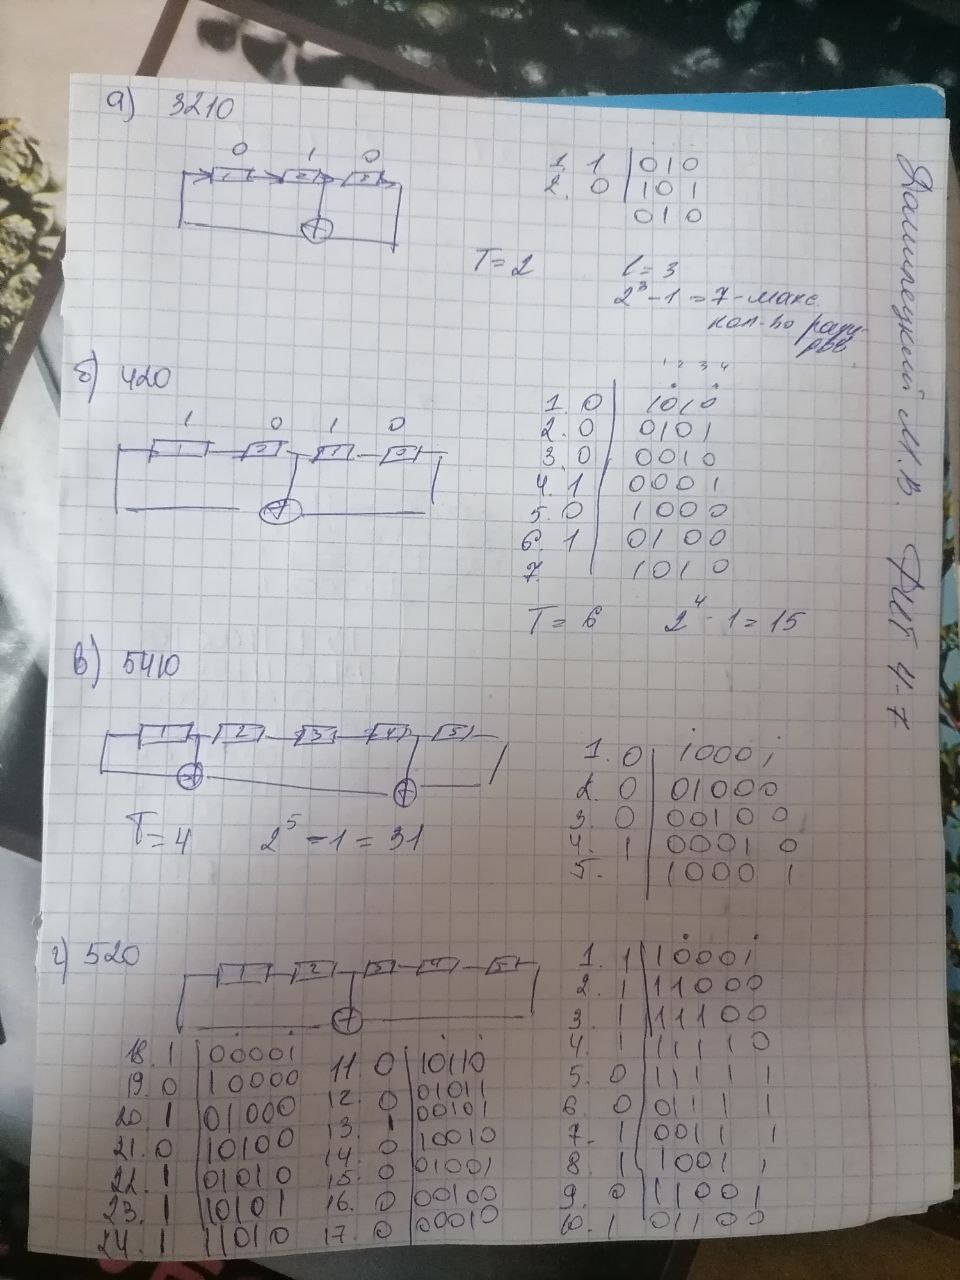 а) 3210
0 1 0
1 2 3
1. 1 | 010
2. 0 | 101
010
T = 2
l = 3
2^3 - 1 = 7 - макс.
кол-во разрядов
б) 420
1 0 1 0
1 2 3 4
1 2 3 4
1. 0 | 1010
2. 0 | 0101
3. 0 | 0010
4. 1 | 0001
5. 0 | 1000
6. 1 | 0100
7. 1010
T = 6 2^4 - 1 = 15
в) 5410
1 2 3 4 5
T = 4 2^5 - 1 = 31
1. 0 | 10001
2. 0 | 01000
3. 0 | 00100
4. 1 | 00010
5. | 10001
г) 520
1 2 3 4 5
1. 1 | 10001
2. 1 | 11000
3. 1 | 11100
4. 1 | 11110
5. 0 | 11111
6. 0 | 01111
7. 1 | 00111
8. 1 | 10011
9. 0 | 11001
10. 1 | 01100
11. 0 | 10110
12. 0 | 01011
13. 1 | 00101
14. 0 | 10010
15. 0 | 01001
16. 0 | 00100
17. 0 | 00010
18. 1 | 00001
19. 0 | 10000
20. 1 | 01000
21. 0 | 10100
22. 1 | 01010
23. 1 | 10101
24. 1 | 11010
М.В. РИБ 4-7